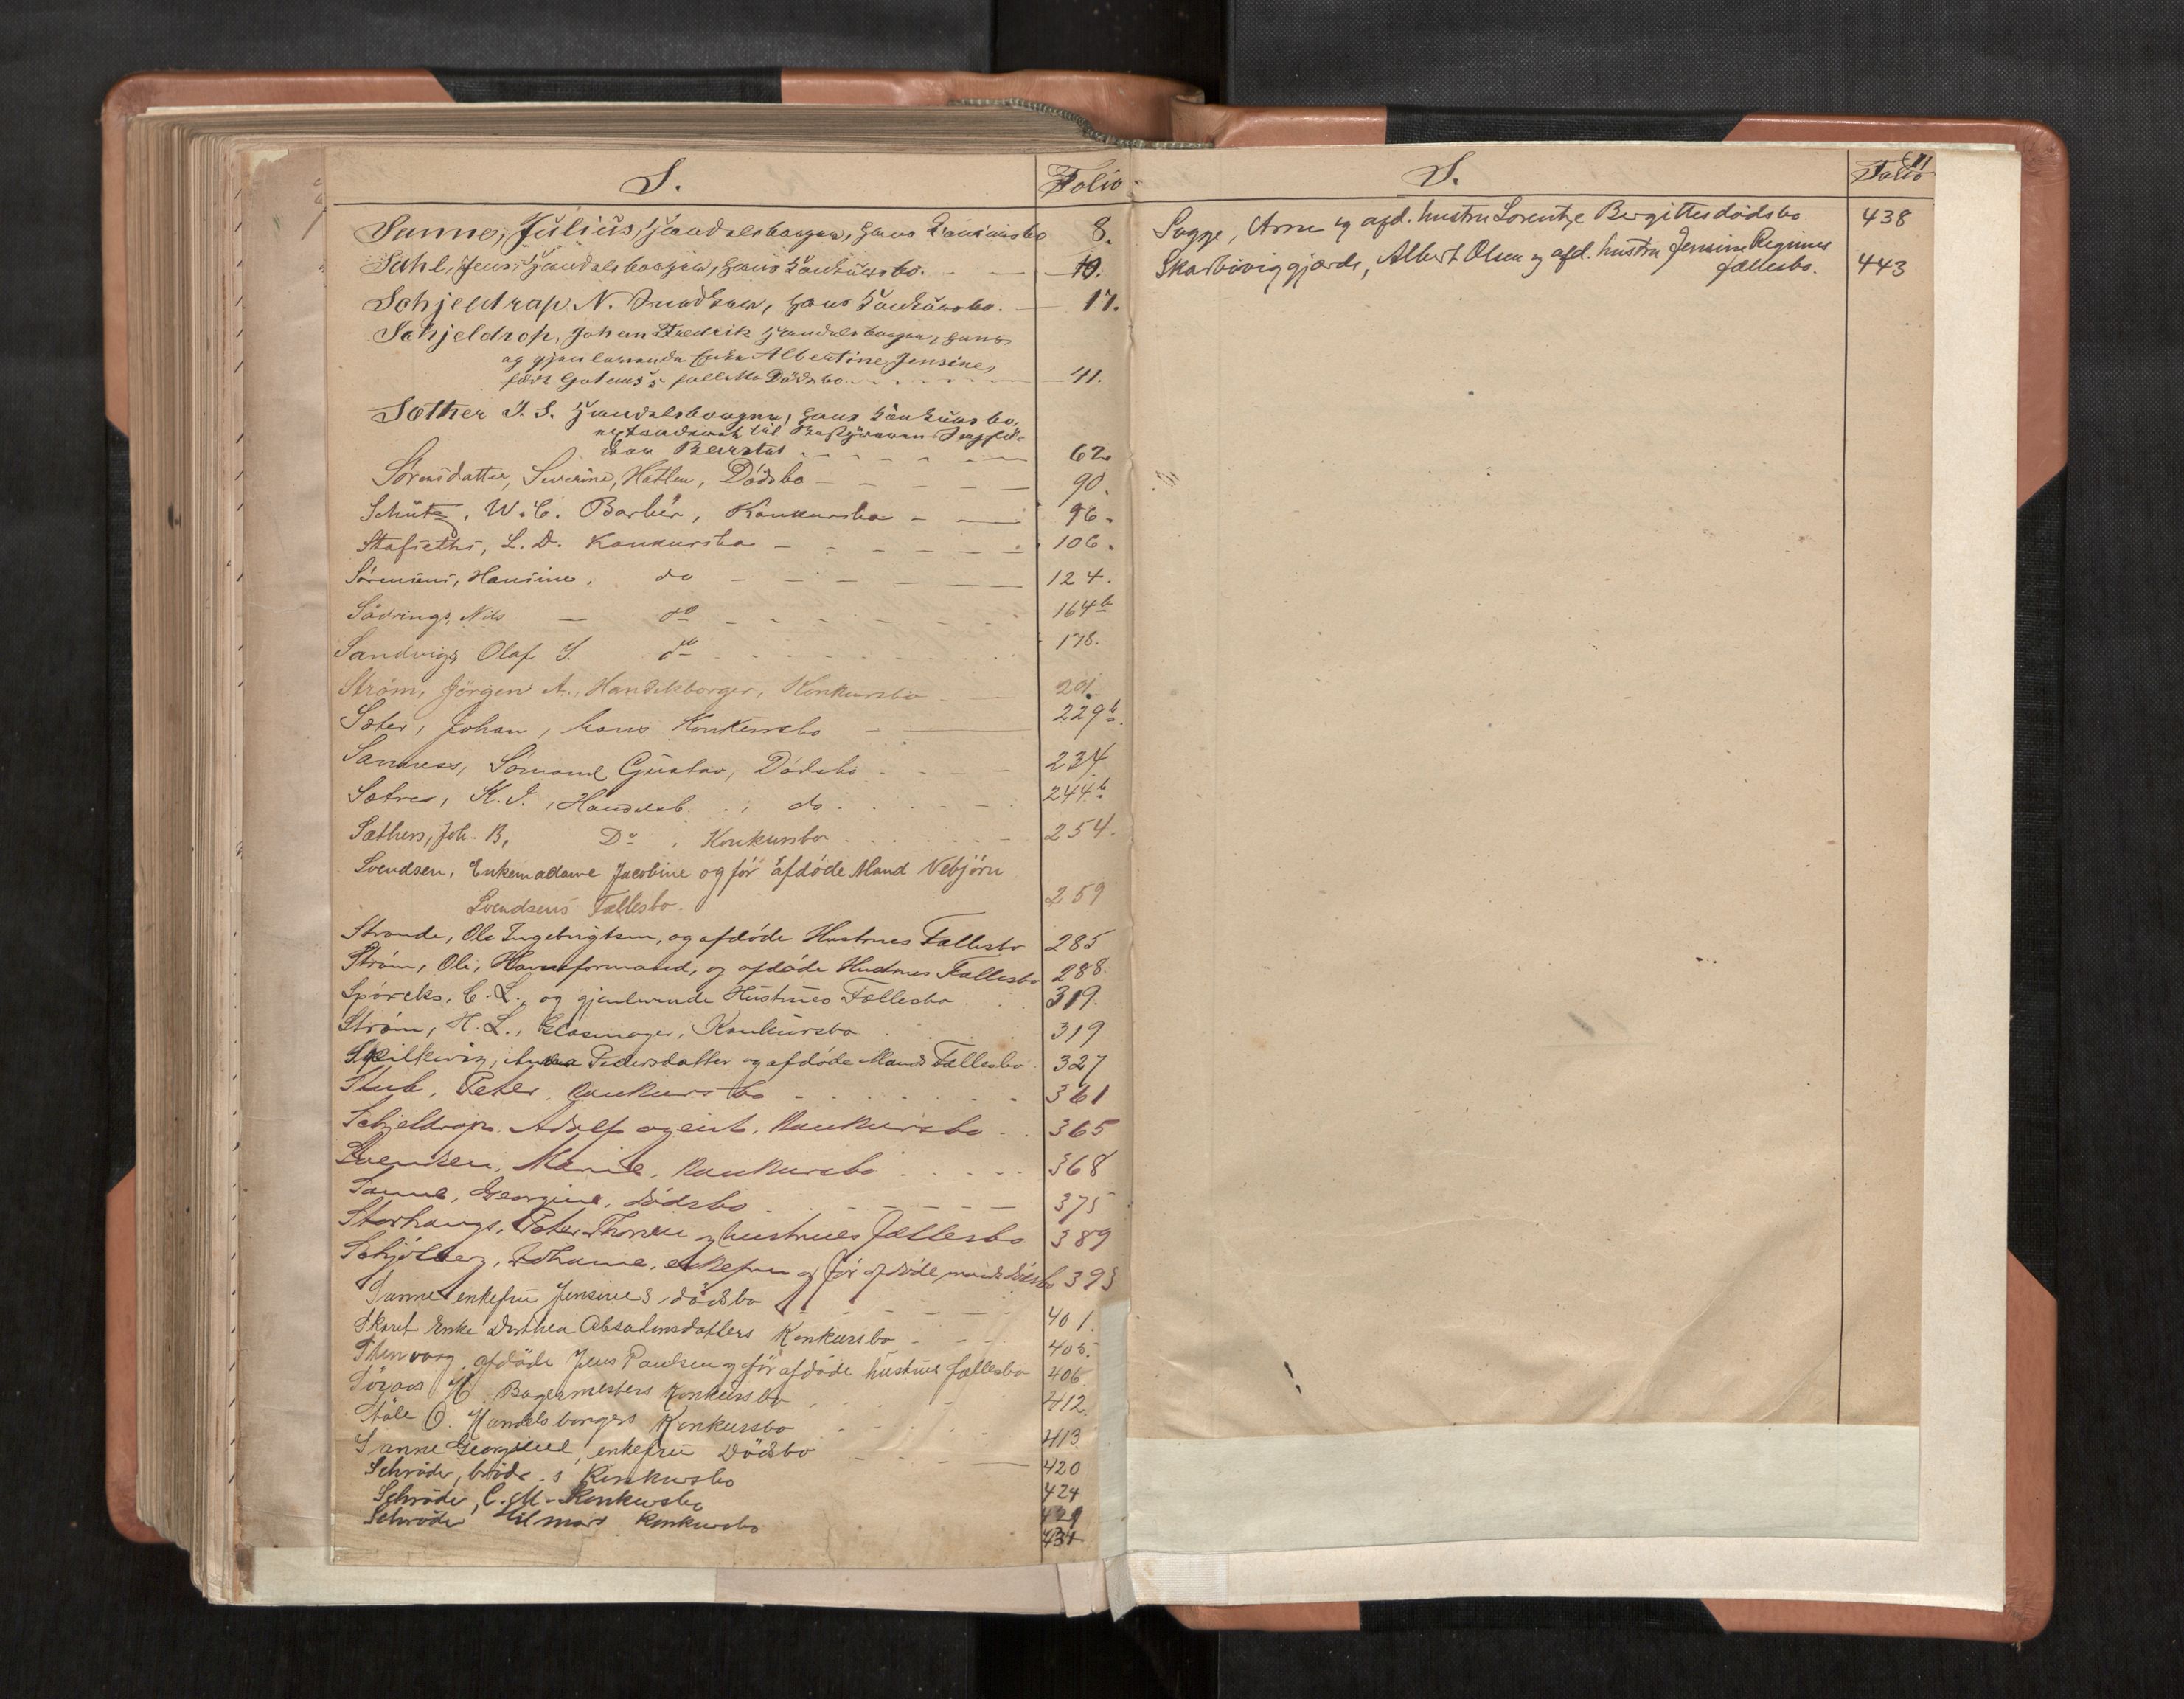 S.
Folio
Sanne, Julius, Handelsborger, hans Konkursbo 8.
Dahl, Jens, Handelsborger, hans Konkursbo. 10.
Schjeldrop N. Snedker, hans Konkursbo. 17.
Schjeldrop, Johan Fredrik Handelsborger, hans
og gjenlevende Enke Albertine Jensine,
født fælleds Dødsbo 41.
Sæther J. S. Handelsborger, hans Konkursbo,
62
Sørensdatter, Severine, Hatlen, Dødsbo 90.
Schütz, W. C. Barber, Konkursbo 96.
Stafseths, L. D. Konkursbo 106.
Sørensens, Hansine, do 124.
Sövrings, Nils do 164 b
Sandvigs Olaf J. do 178.
Strøm, Jörgen A., Handelsborger, Konkursbo 201.
Sæter, Johan, hans Konkursbo 229 b.
Sanness, Gustav, Dødsbo 234
Sætres, K. J., Handelsb. do 244 b
Sæthers, Joh. B, Do, Konkursbo 254.
Svendsen, Enkemadame Jacobine og før afdøde Mand Vebjörn
Svendsens Fællesbo. 259
Strande, Ole Ingebrigtsen, og afdøde Hustrues Fællesbo 285
Strøm, Ole, Havneformand, og afdøde Hustrues Fællesbo 288.
Spörcks, C. L., og gjenlevende Hustrues Fællesbo 319.
Strøm, H. L., Glasmager, Konkursbo 319
Spilkevig, Pedersdatter og afdøde Mands Fællesbo 327
Stub, Peter, Konkursbo 361
Schjeldrop. Adolf agent. Konkursbo 365
Svendsen, Marie, Konkursbo 368
Sanne, Georgine, Dødsbo 375
Storhaugs, Peter Thoresen og hustrues Fællesbo 389
Schjölberg, Johanne, enkefru og før afdøde mands Dødsbo 393
Sanne enkefru Jensines dødsbo 401.
Skaret Enke Dorthea Absalonsdatters Konkursbo 405.
Stenvaag, afdøde Jens Paulsen og før afdøde hustrues fællesbo 406
H. Bagermesters Konkursbo 412.
Ståle O. Handelsborgers Konkursbo 413
Sanne Georgine, enkefru Dødsbo 420
Schrøder, brødr. s Konkursbo 424
Schrøder, C. M. Konkursbo 429
Schrøder Hilmars Konkursbo 431
S.
Folio
Sogge, Arne og afd. hustru Lorentze Bergittes dødsbo 438
Skarbövig gjærde, Albert Olsen og afd. hustru Jensine Regines
fællesbo. 443